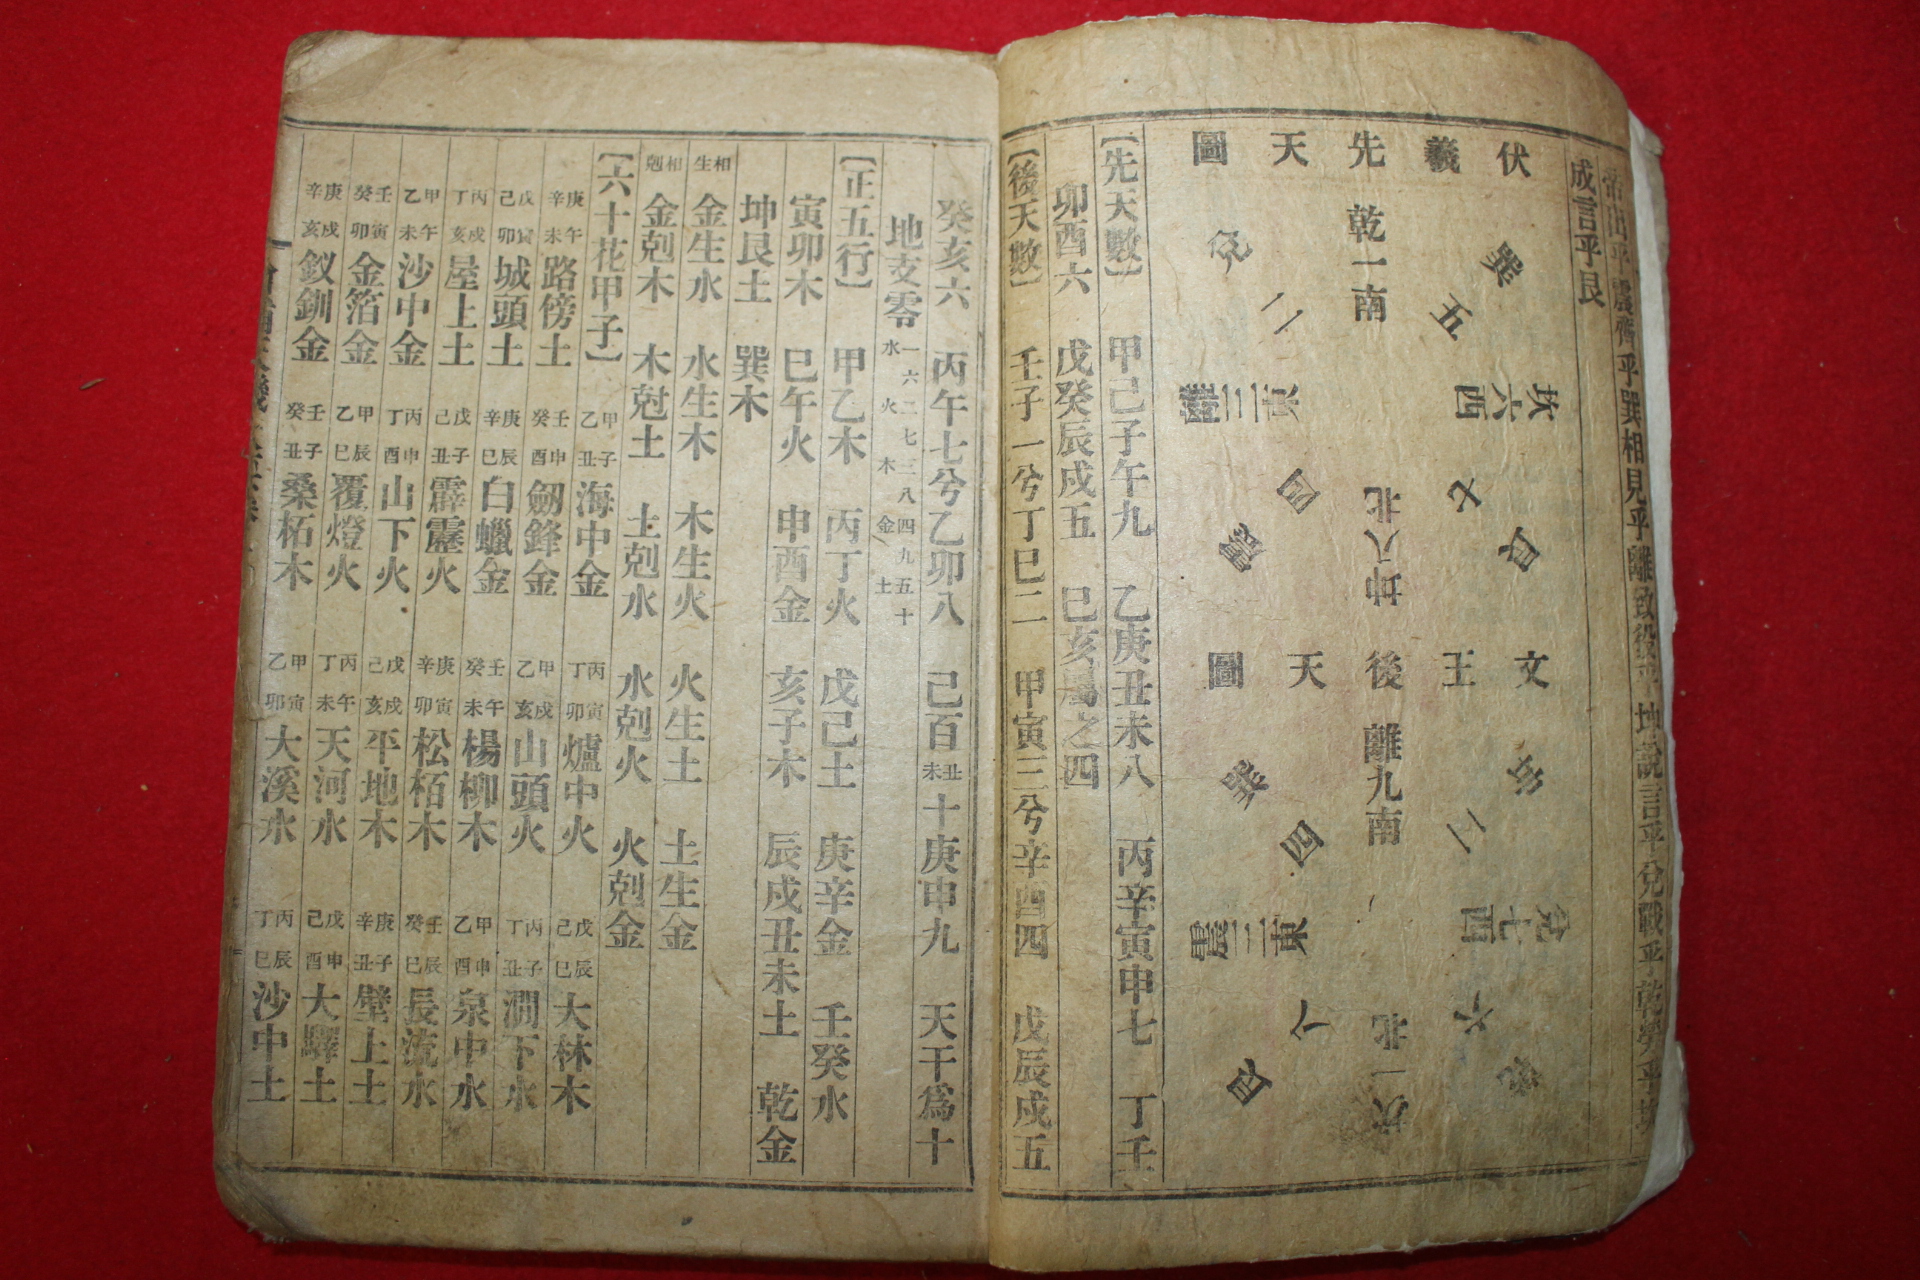 帝出乎震齊乎巽相見乎離致役乎地說言乎兌戰乎乾勞乎坎
成言乎艮
伏羲先天圖
乾一南
兌二
離三東
震四
巽五
坎六西
艮七
坤八北
文王後天圖
離九南
坤二
兌七西
乾六
坎一北
艮八
震三東
巽四
〔先天數〕 甲己子午九 乙庚丑未八 丙辛寅申七 丁壬
卯酉六 戊癸辰戌五 巳亥屬之四
〔後天數〕 壬子一兮丁巳二 甲寅三兮辛酉四 戊辰戌五
癸亥六 丙午七兮乙卯八 己百丑未十庚申九 天干爲十
地支零 一六水二七火三八木四九金五十土
〔正五行〕 甲乙木 丙丁火 戊己土 庚辛金 壬癸水
寅卯木 巳午火 申酉金 亥子木 辰戌丑未土 乾金
坤艮土 巽木
相生 金生水 水生木 木生火 火生土 土生金
相剋 金剋木 木尅土 土剋水 水剋火 火剋金
〔六十花甲子〕 甲子乙丑海中金 丙寅丁卯爐中火 戊辰己巳大林木
庚午辛未路傍土 壬申癸酉劒鋒金 甲戌乙亥山頭火 丙子丁丑澗下水
戊寅己卯城頭土 庚辰辛巳白蠟金 壬午癸未楊柳木 甲申乙酉泉中水
丙戌丁亥屋上土 戊子己丑霹靂火 庚寅辛卯松栢木 壬辰癸巳長流水
甲午乙未沙中金 丙申丁酉山下火 戊戌己亥平地木 庚子辛丑壁上土
壬寅癸卯金箔金 甲辰乙巳覆燈火 丙午丁未天河水 戊申己酉大驛土
庚戌辛亥釵釧金 壬子癸丑桑柘木 甲寅乙卯大溪水 丙辰丁巳沙中土